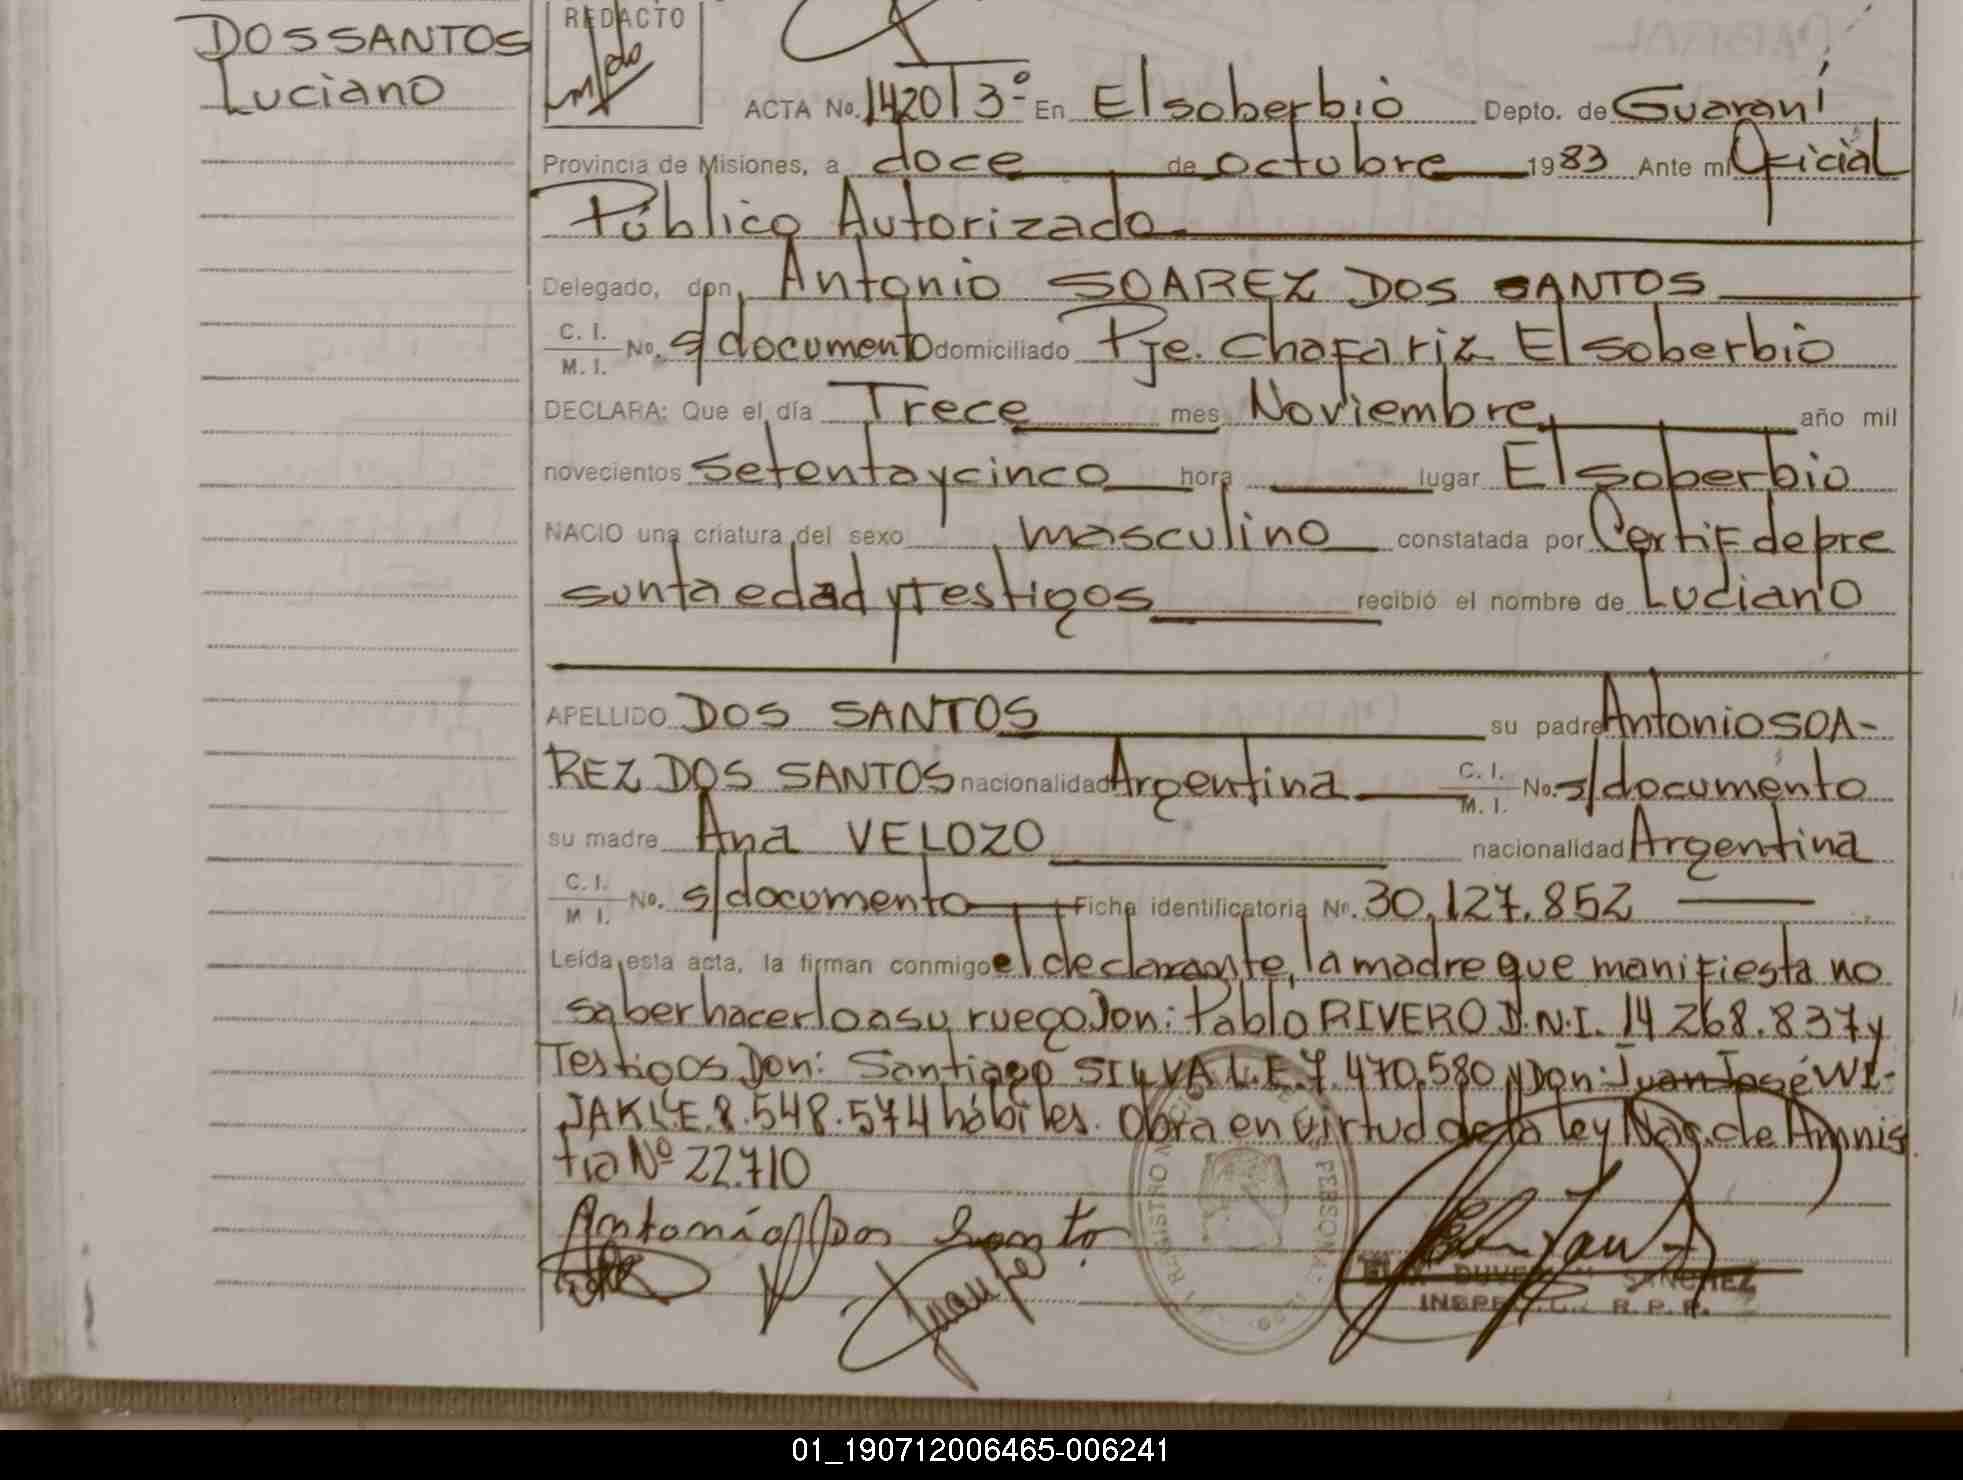 DOS SANTOS
Luciano
REDACTO
ACTA No. 1420 T 3º En El soberbio Depto. de Guaraní
Provincia de Misiones, a doce de octubre 1983 Ante mi Oficial
Público Autorizado
Delegado, don, Antonio SOAREZ DOS SANTOS
C. I.
M. I. No. s/documento domiciliado Pje. Chafariz El soberbio
DECLARA: Que el día Trece mes Noviembre año mil
novecientos setenta y cinco hora lugar El soberbio
NACIO una criatura del sexo masculino constatada por Certif de pre
sunta edad y Testigos recibió el nombre de Luciano
APELLIDO DOS SANTOS su padre Antonio SOA-
REZ DOS SANTOS nacionalidad Argentina C. I. M. I. No. s/documento
su madre Ana VELOZO nacionalidad Argentina
C. I.
M I. No. s/documento Ficha identificatoria No. 30.127.852
Leída esta acta, la firman conmigo el declarante, la madre que manifiesta no
saber hacerlo a su ruego Don: Pablo RIVERO D.N.I. 14 268.837 y
Testigos Don: Santiago SILVA L.E. 7.470.580 y Don: Juan José WI-
JAK L.E. 8.548.574 hábiles. Obra en virtud de la ley Nac. de Amnis
tia Nº 22.710
Antonio Dos Santo
REGISTRO
SANCHEZ
R. P. P.
01_190712006465-006241